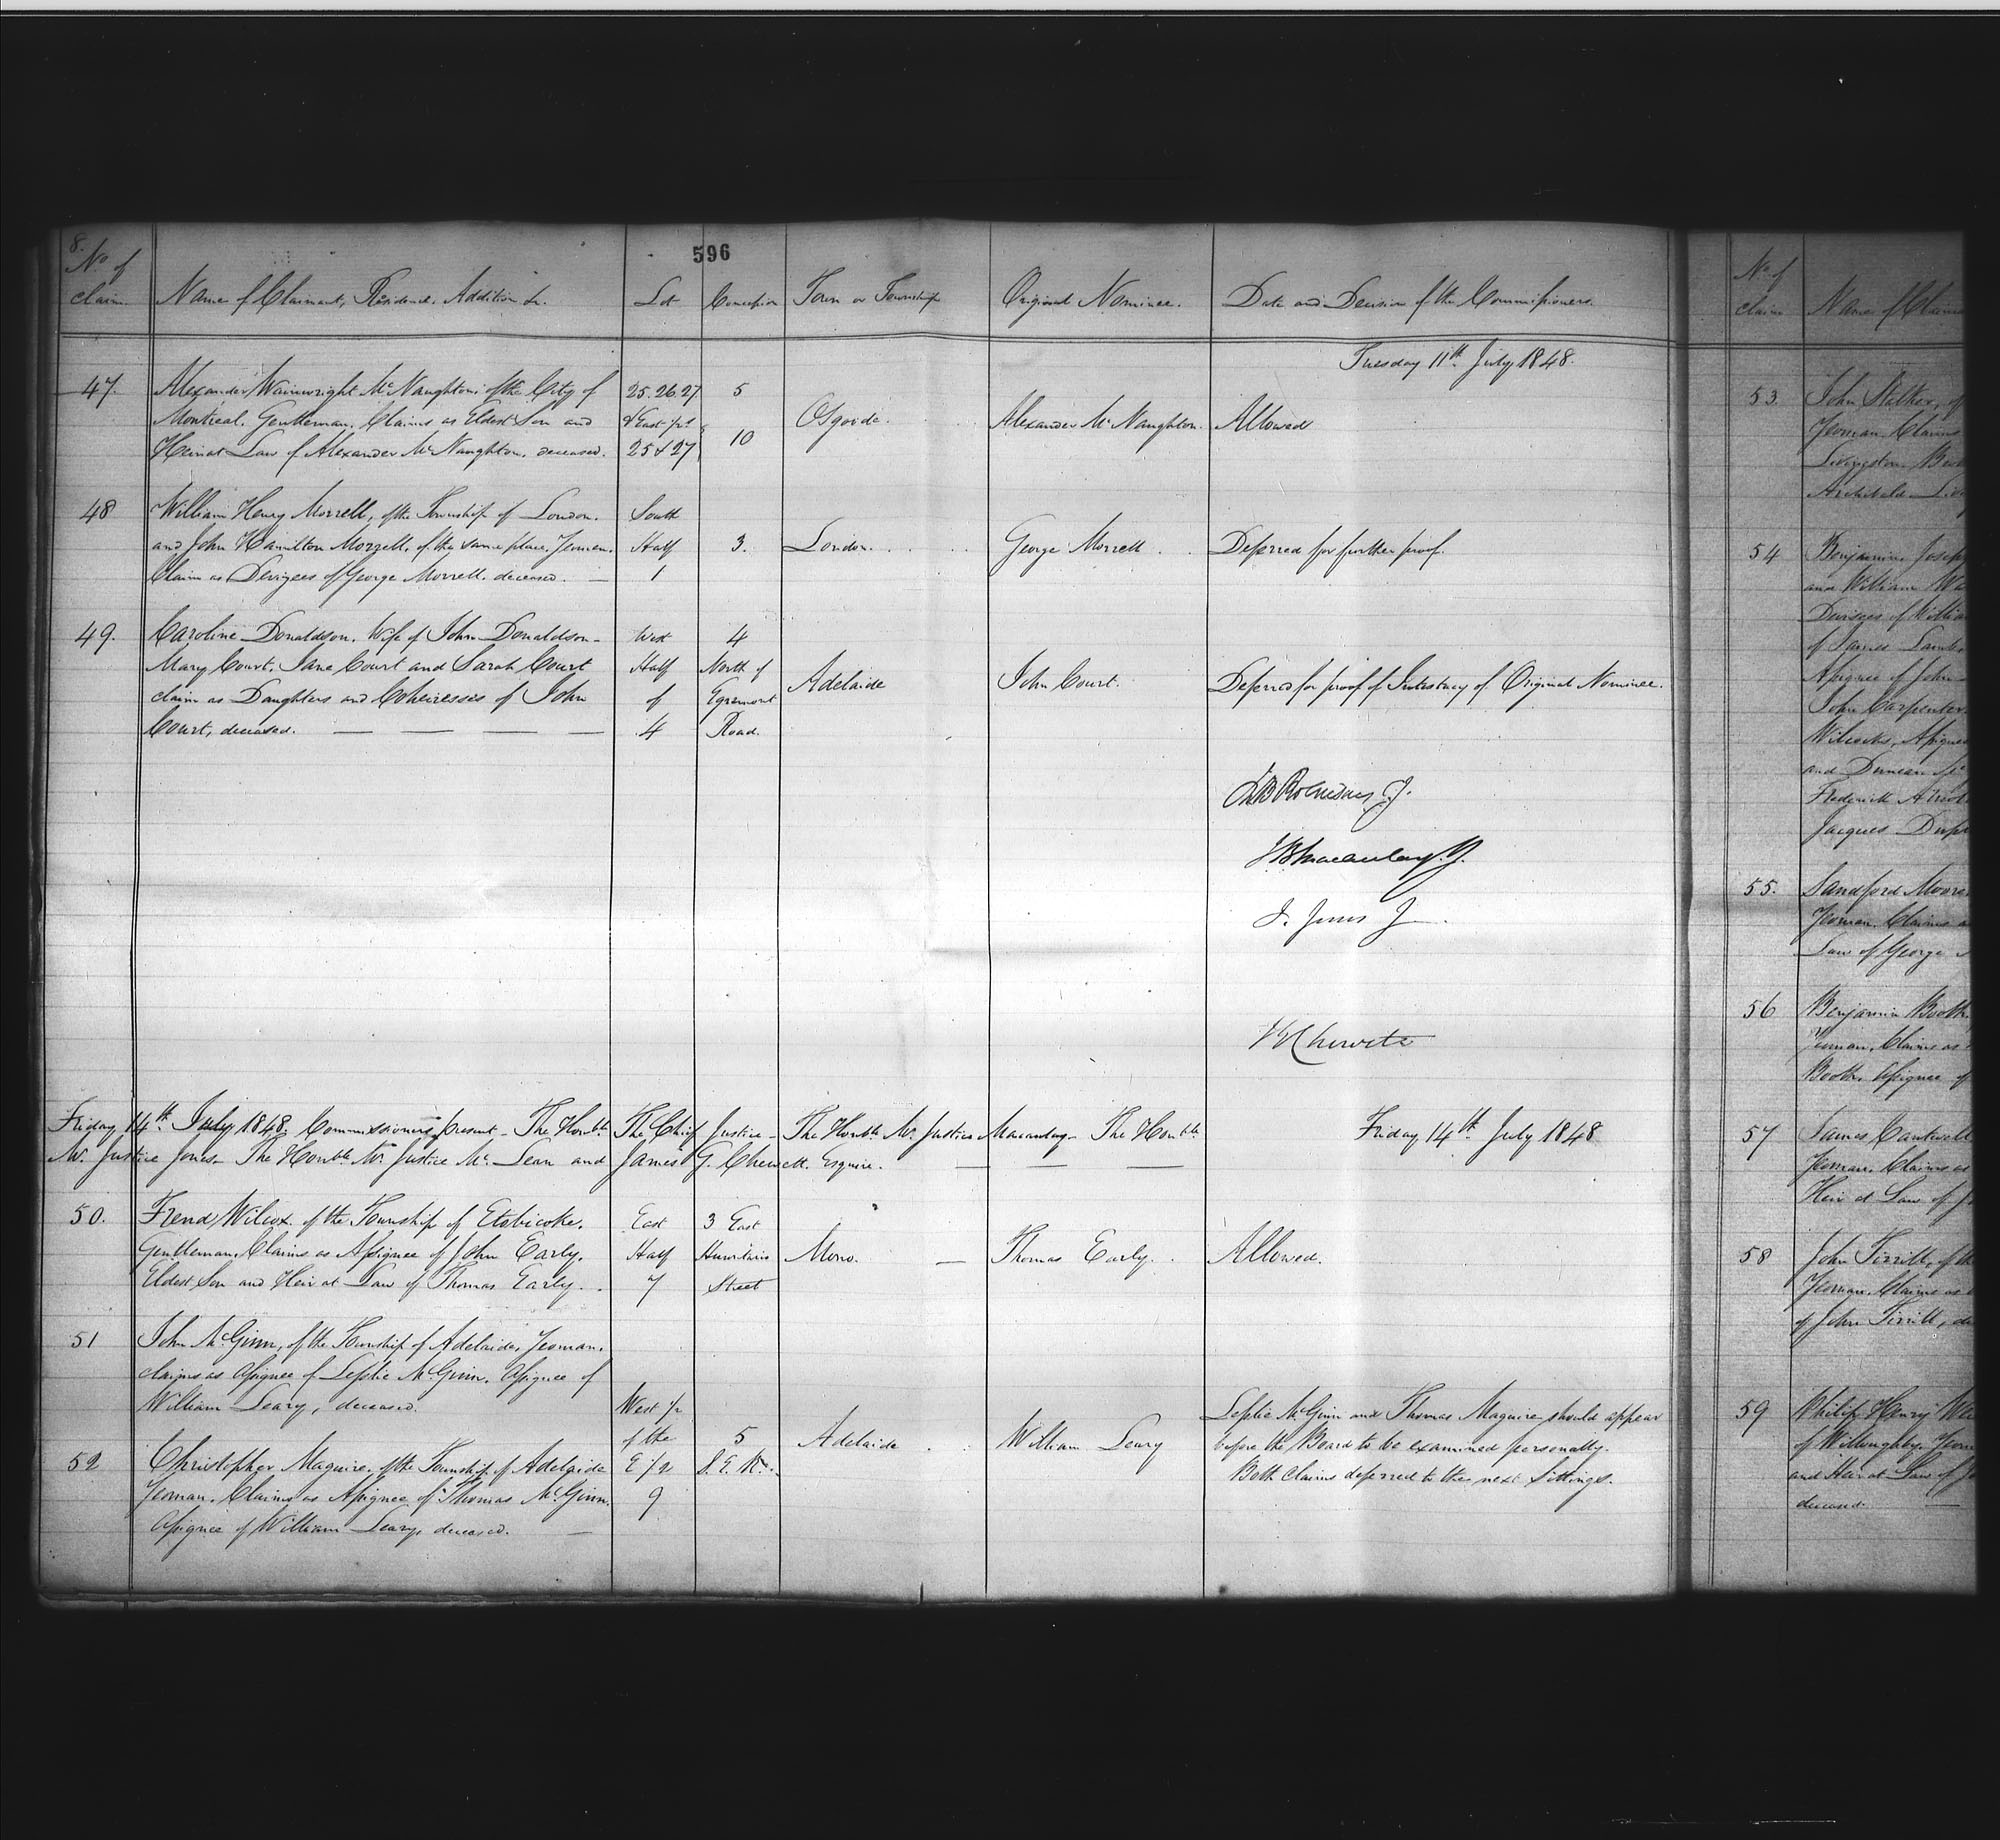 8.
596
No of claim. Name of Claimant, Residence, Addition &c. Lot Concession Town or Township Original Nominee. Date and Decision of the Commissioners.
Tuesday 11th July 1848.
47. Alexander Wainwright McNaughton, of the City of 25. 26. 27. 5
Montreal. Gentleman. Claims as Eldest Son and & East prt Osgoode. Alexander McNaughton. Allowed
Heir at Law of Alexander McNaughton, deceased. 25 & 27 10
48 William Henry Morrell, of the Township of London. South
and John Hamilton Morrell, of the same place, Yeomen. Half 3. London. George Morrell. Deferred for further proof.
Claim as Devizees of George Morrell. deceased. — 1
49. Caroline Donaldson, Wife of John Donaldson— West 4
Mary Court, Jane Court and Sarah Court Half North of
claim as Daughters and Coheiresses of John of Egremont Adelaide John Court. Deferred for proof of Intestacy of Original Nominee.
Court, deceased. — — — — 4 Road.
Jno B Robinson C.J.
J B Macaulay. J.
J. Jones J
J G Chewett
Friday 14th July 1848. Commissioners present— The Honble The Chief Justice— The Honble Mr Justice Macaulay— The Honble Friday, 14th July 1848
Mr Justice Jones— The Honble Mr Justice McLean and James G. Chewett. Esquire. — — —
50. Frend Wilcox of the Township of Etobicoke. East 3 East
Gentleman. Claims as Assignee of John Early. Half Hurontario Mono. — Thomas Early. Allowed.
Eldest Son and Heir at Law of Thomas Early. 7 Street
51 John McGinn, of the Township of Adelaide, Yeoman.
claims as Assignee of Leslie McGinn, Assignee of
William Leary, deceased. West 1/2 Leslie McGinn and Thomas Maguire should appear
of the 5 Adelaide William Leary before the Board to be examined personally.
52 Christopher Maguire, of the Township of Adelaide E 1/2 S. E. Rd. Both claims deferred to the next Sittings.
Yeoman. Claims as Assignee of Thomas McGinn. 9
Assignee of William Leary, deceased. —
No of claim Name of Claima
53. John Stalker, of
Yeoman Claims
Livingston
Archibald Liv
54 Benjamin Josep
and William Wa
Devisees of Willia
of James Lamb,
Assignee of John
John Carpenter
Wilcocks, Assignee
and Duncan Mc
Frederick
Jacques Dup
55. Sandford Moore
Yeoman. Claims a
Law of George
56 Benjamin Booth
Yeoman. Claims as
Booth. Assignee of
57 James Cantwell
Yeoman. Claims as
Heir at Law of J
58 John Tirrill, of the
Yeoman. Claims as
of John Tirrill, de
59 Philip Henry We
of Willoughby. Yeom
and Heir at Law of J
deceased. —